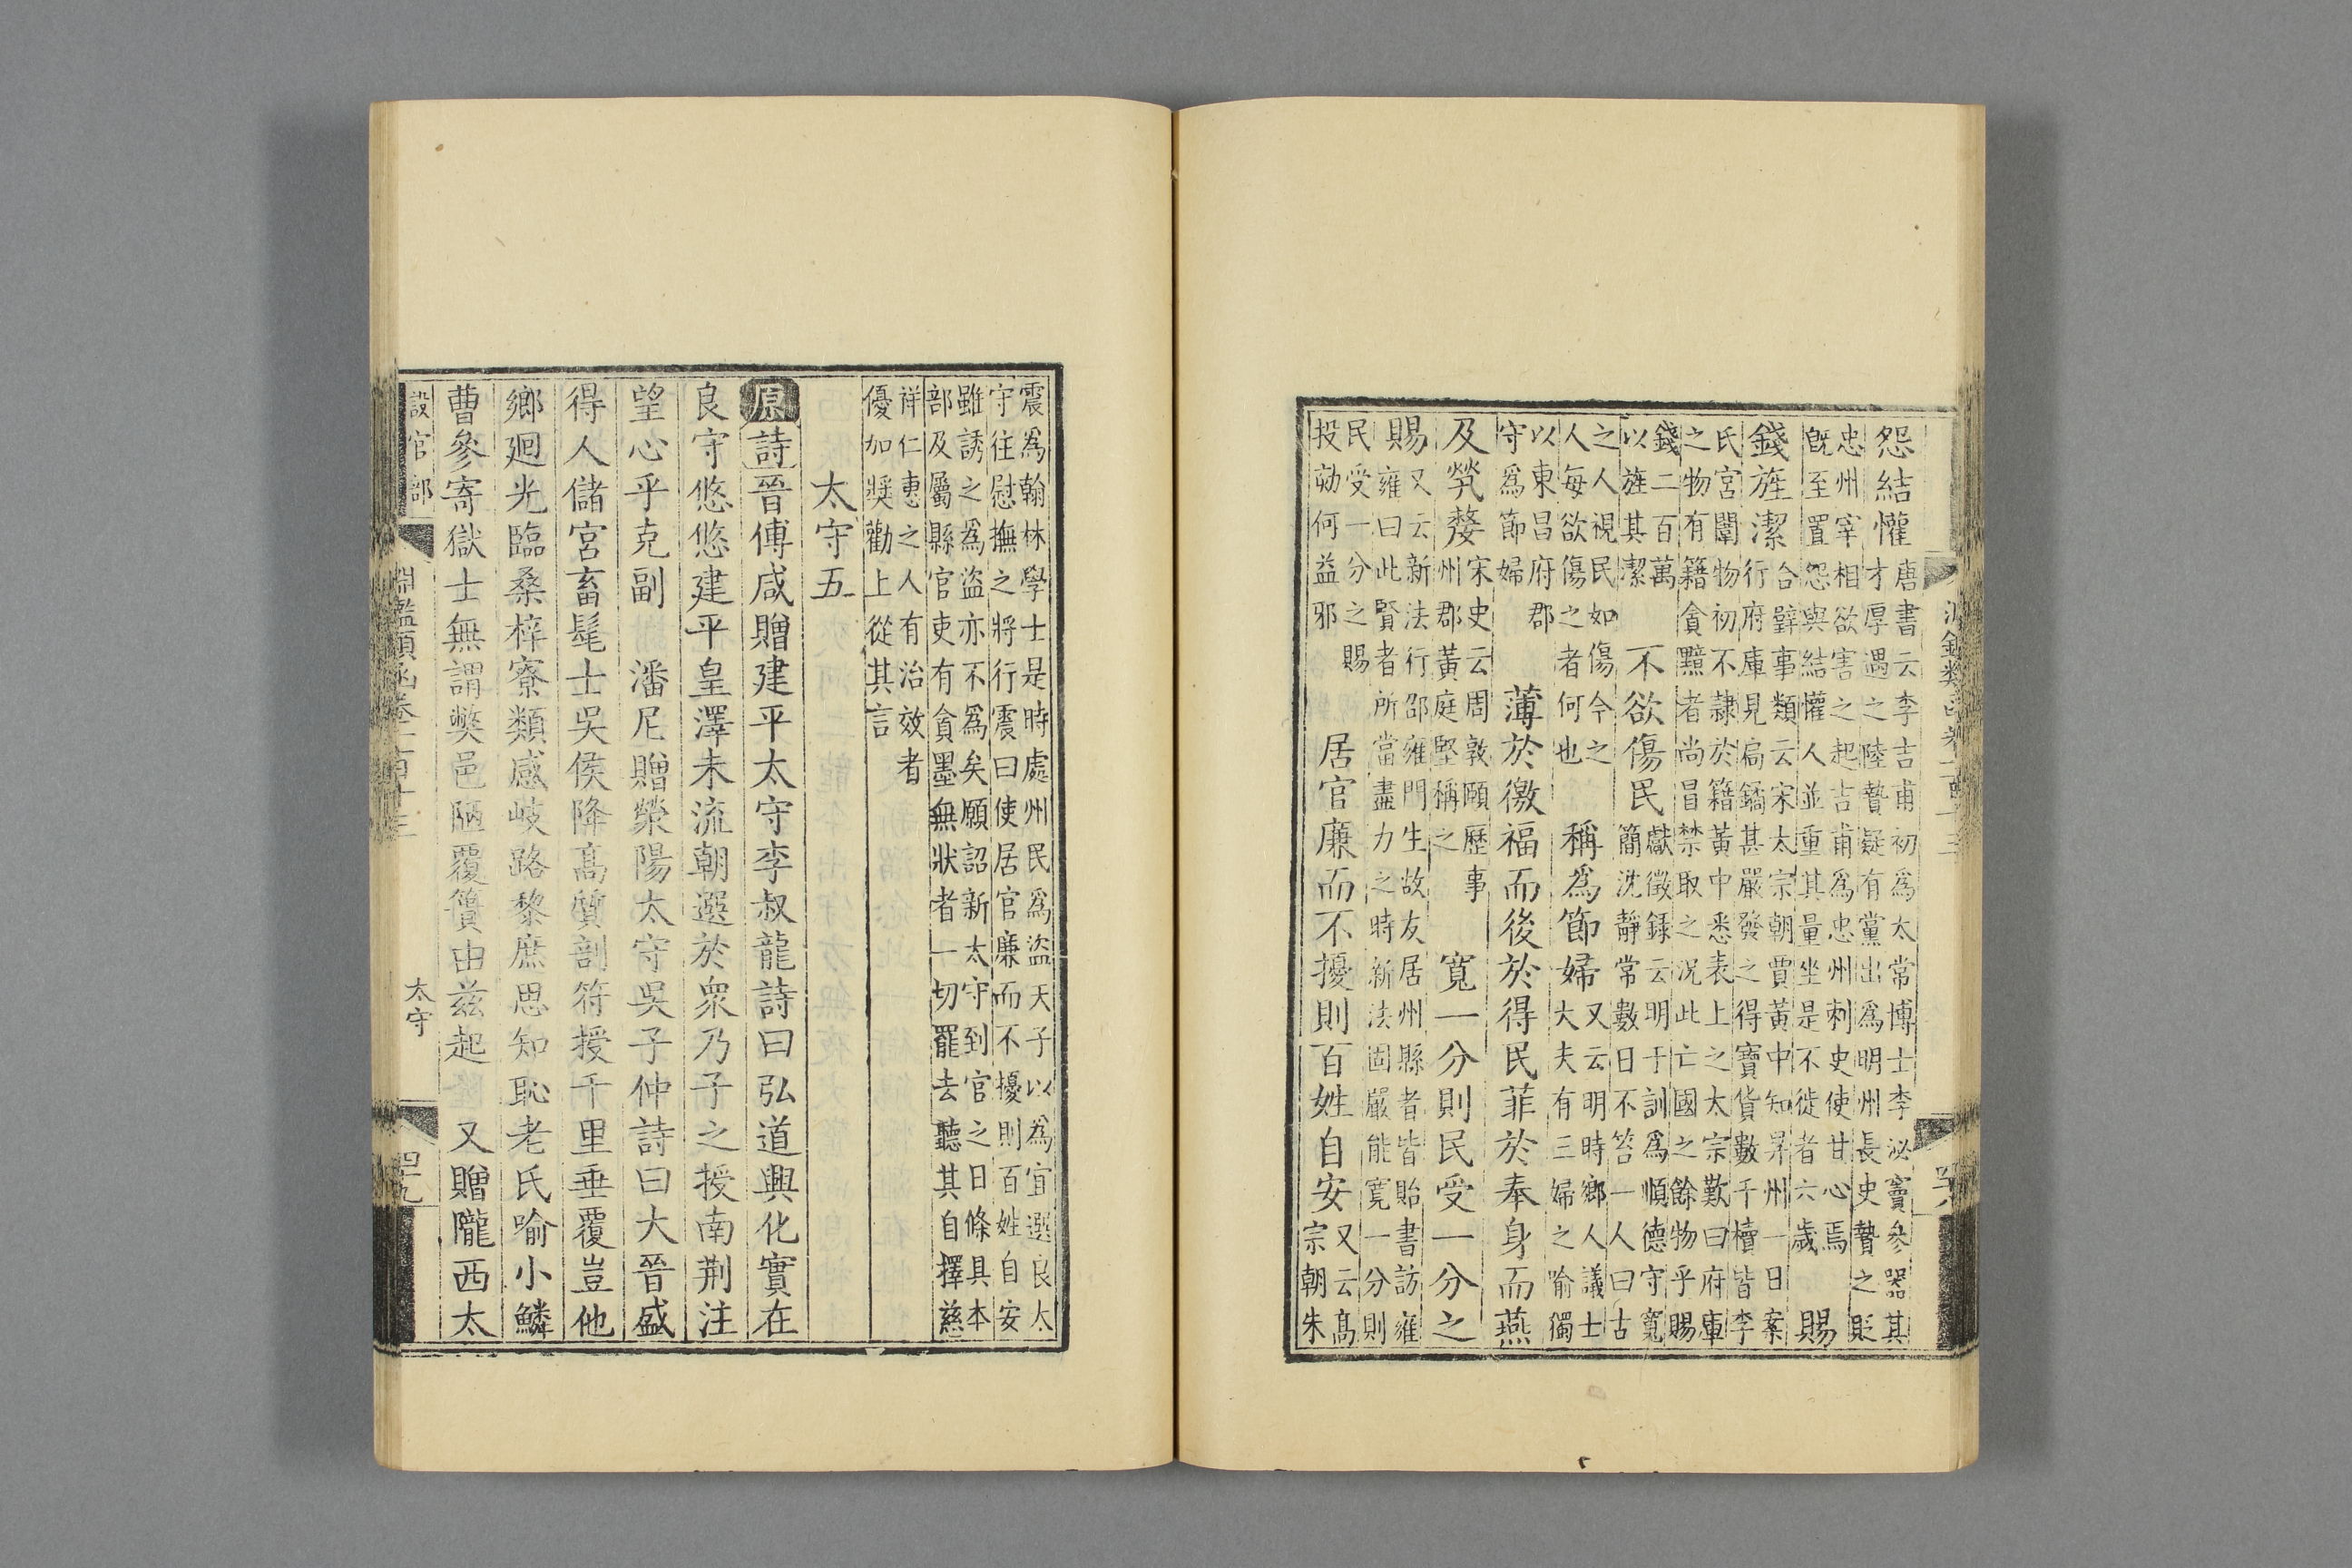 怨結懽唐書云李吉甫初爲太常博士李泌竇參器其
才厚遇之陸贄疑有黨出爲明州長史贄之貶
忠州宰相欲害之起吉甫爲忠州刺史使甘心焉
旣至置怨與結懽人並重其量坐是不徙者六歲　賜
錢旌潔合璧事類云宋太宗朝賈黃中知昇州一日案
行府庫見扃鐍甚嚴發之得寶貨數千櫝皆李
氏宮闈物初不隷於籍黃中悉表上之太宗歎曰府庫
之物有籍貪黷者尚冒禁取之况此亡國之餘物乎賜
錢二百萬
以旌其潔　不欲傷民獻徵録云明于訓爲順德守寬
簡沈靜常數日不笞一人曰古
之人視民如傷今之
人每欲傷之者何也　稱爲節婦又云明時鄉人議士
大夫有三婦之喻獨
以東昌府郡
守爲節婦　薄於徼福而後於得民菲於奉身而燕
及煢嫠宋史云周敦頤歷事
州郡黃庭堅稱之　寬一分則民受一分之
賜又云新法行邵雍門生故友居州縣者皆貽書訪雍
雍曰此賢者所當盡力之時新法固嚴能寬一分則
民受一分之賜
投劾何益邪　居官廉而不擾則百姓自安又云高
宗朝朱
震爲翰林學士是時處州民爲盜天子以爲宜選良太
守往慰撫之將行震曰使居官廉而不擾則百姓自安
雖誘之爲盜亦不爲矣願詔新太守到官之日條具本
部及屬縣官吏有貪墨無狀者一切罷去聽其自擇慈
祥仁惠之人有治效者
優加奬勸上從其言
太守五
原詩晉傅咸贈建平太守李叔龍詩曰弘道興化實在
良守悠悠建平皇澤未流朝選於衆乃子之授南荆注
望心乎克副　潘尼贈滎陽太守吳子仲詩曰大晉盛
得人儲宮畜髦士吳侯降高質剖符授千里垂覆豈他
鄉廻光臨桑梓寮類感岐路黎庶思知恥老氏喻小鱗
曹參寄獄士無謂獘邑陋覆簣由茲起　又贈隴西太
設官部
淵鑑類函卷一百十三
太守
四十九